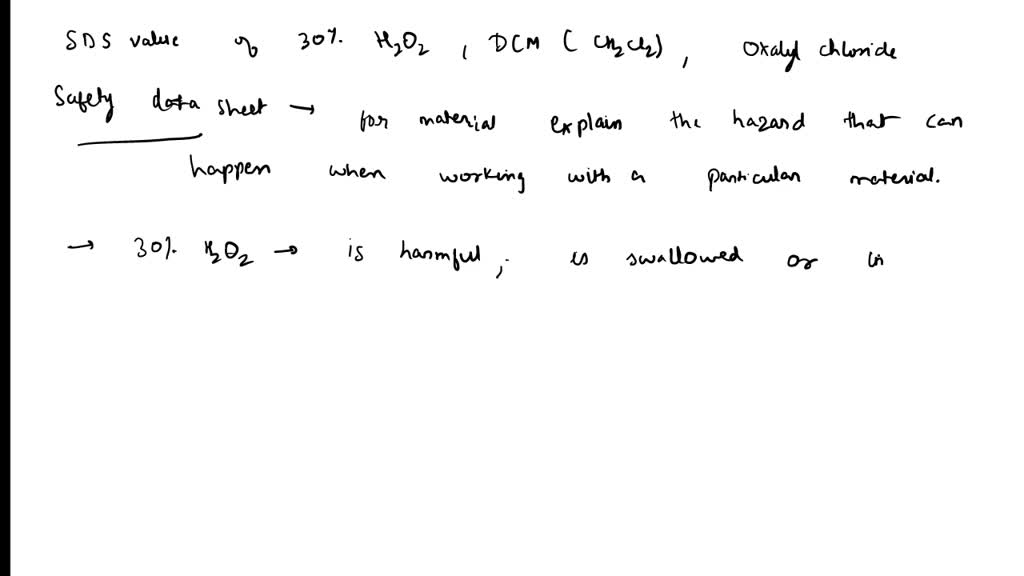 SDS value of 30% H₂O₂, DCM (CH₂Cl₂), Oxalyl chloride
Safety data sheet → for material explain the hazard that can
happen when working with a particular material.
→ 30% H₂O₂ → is harmful, is swallowed or in